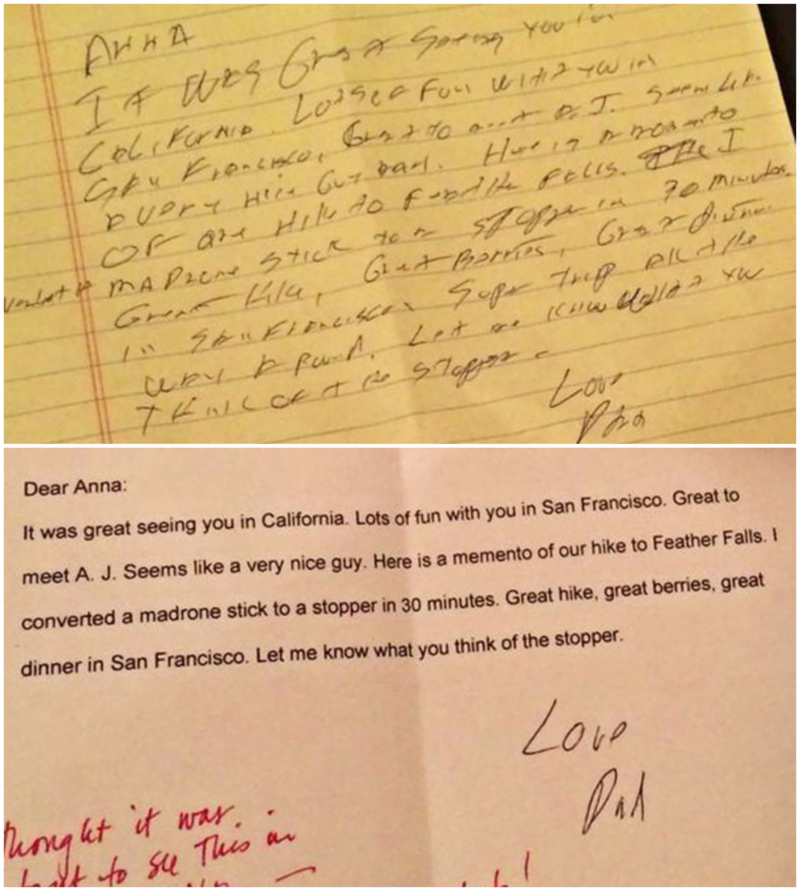 ANNA
It was Great Seeing you in
California. Lots of Fun with you in
San Francisco, Great to meet A. J. Seems like
a very nice Guy Here is a momento
OF our Hike to Falls. I
MADrone Stick to a Stopper in 30 minutes.
Great Hike, Great Berries, Great Dinner
in San Francisco. Super trip all the
way Let me know what you
Think of the Stopper.
Love
Dad
Dear Anna:
It was great seeing you in California. Lots of fun with you in San Francisco. Great to
meet A. J. Seems like a very nice guy. Here is a memento of our hike to Feather Falls. I
converted a madrone stick to a stopper in 30 minutes. Great hike, great berries, great
dinner in San Francisco. Let me know what you think of the stopper.
Love
Dad
thought it was
to see This in